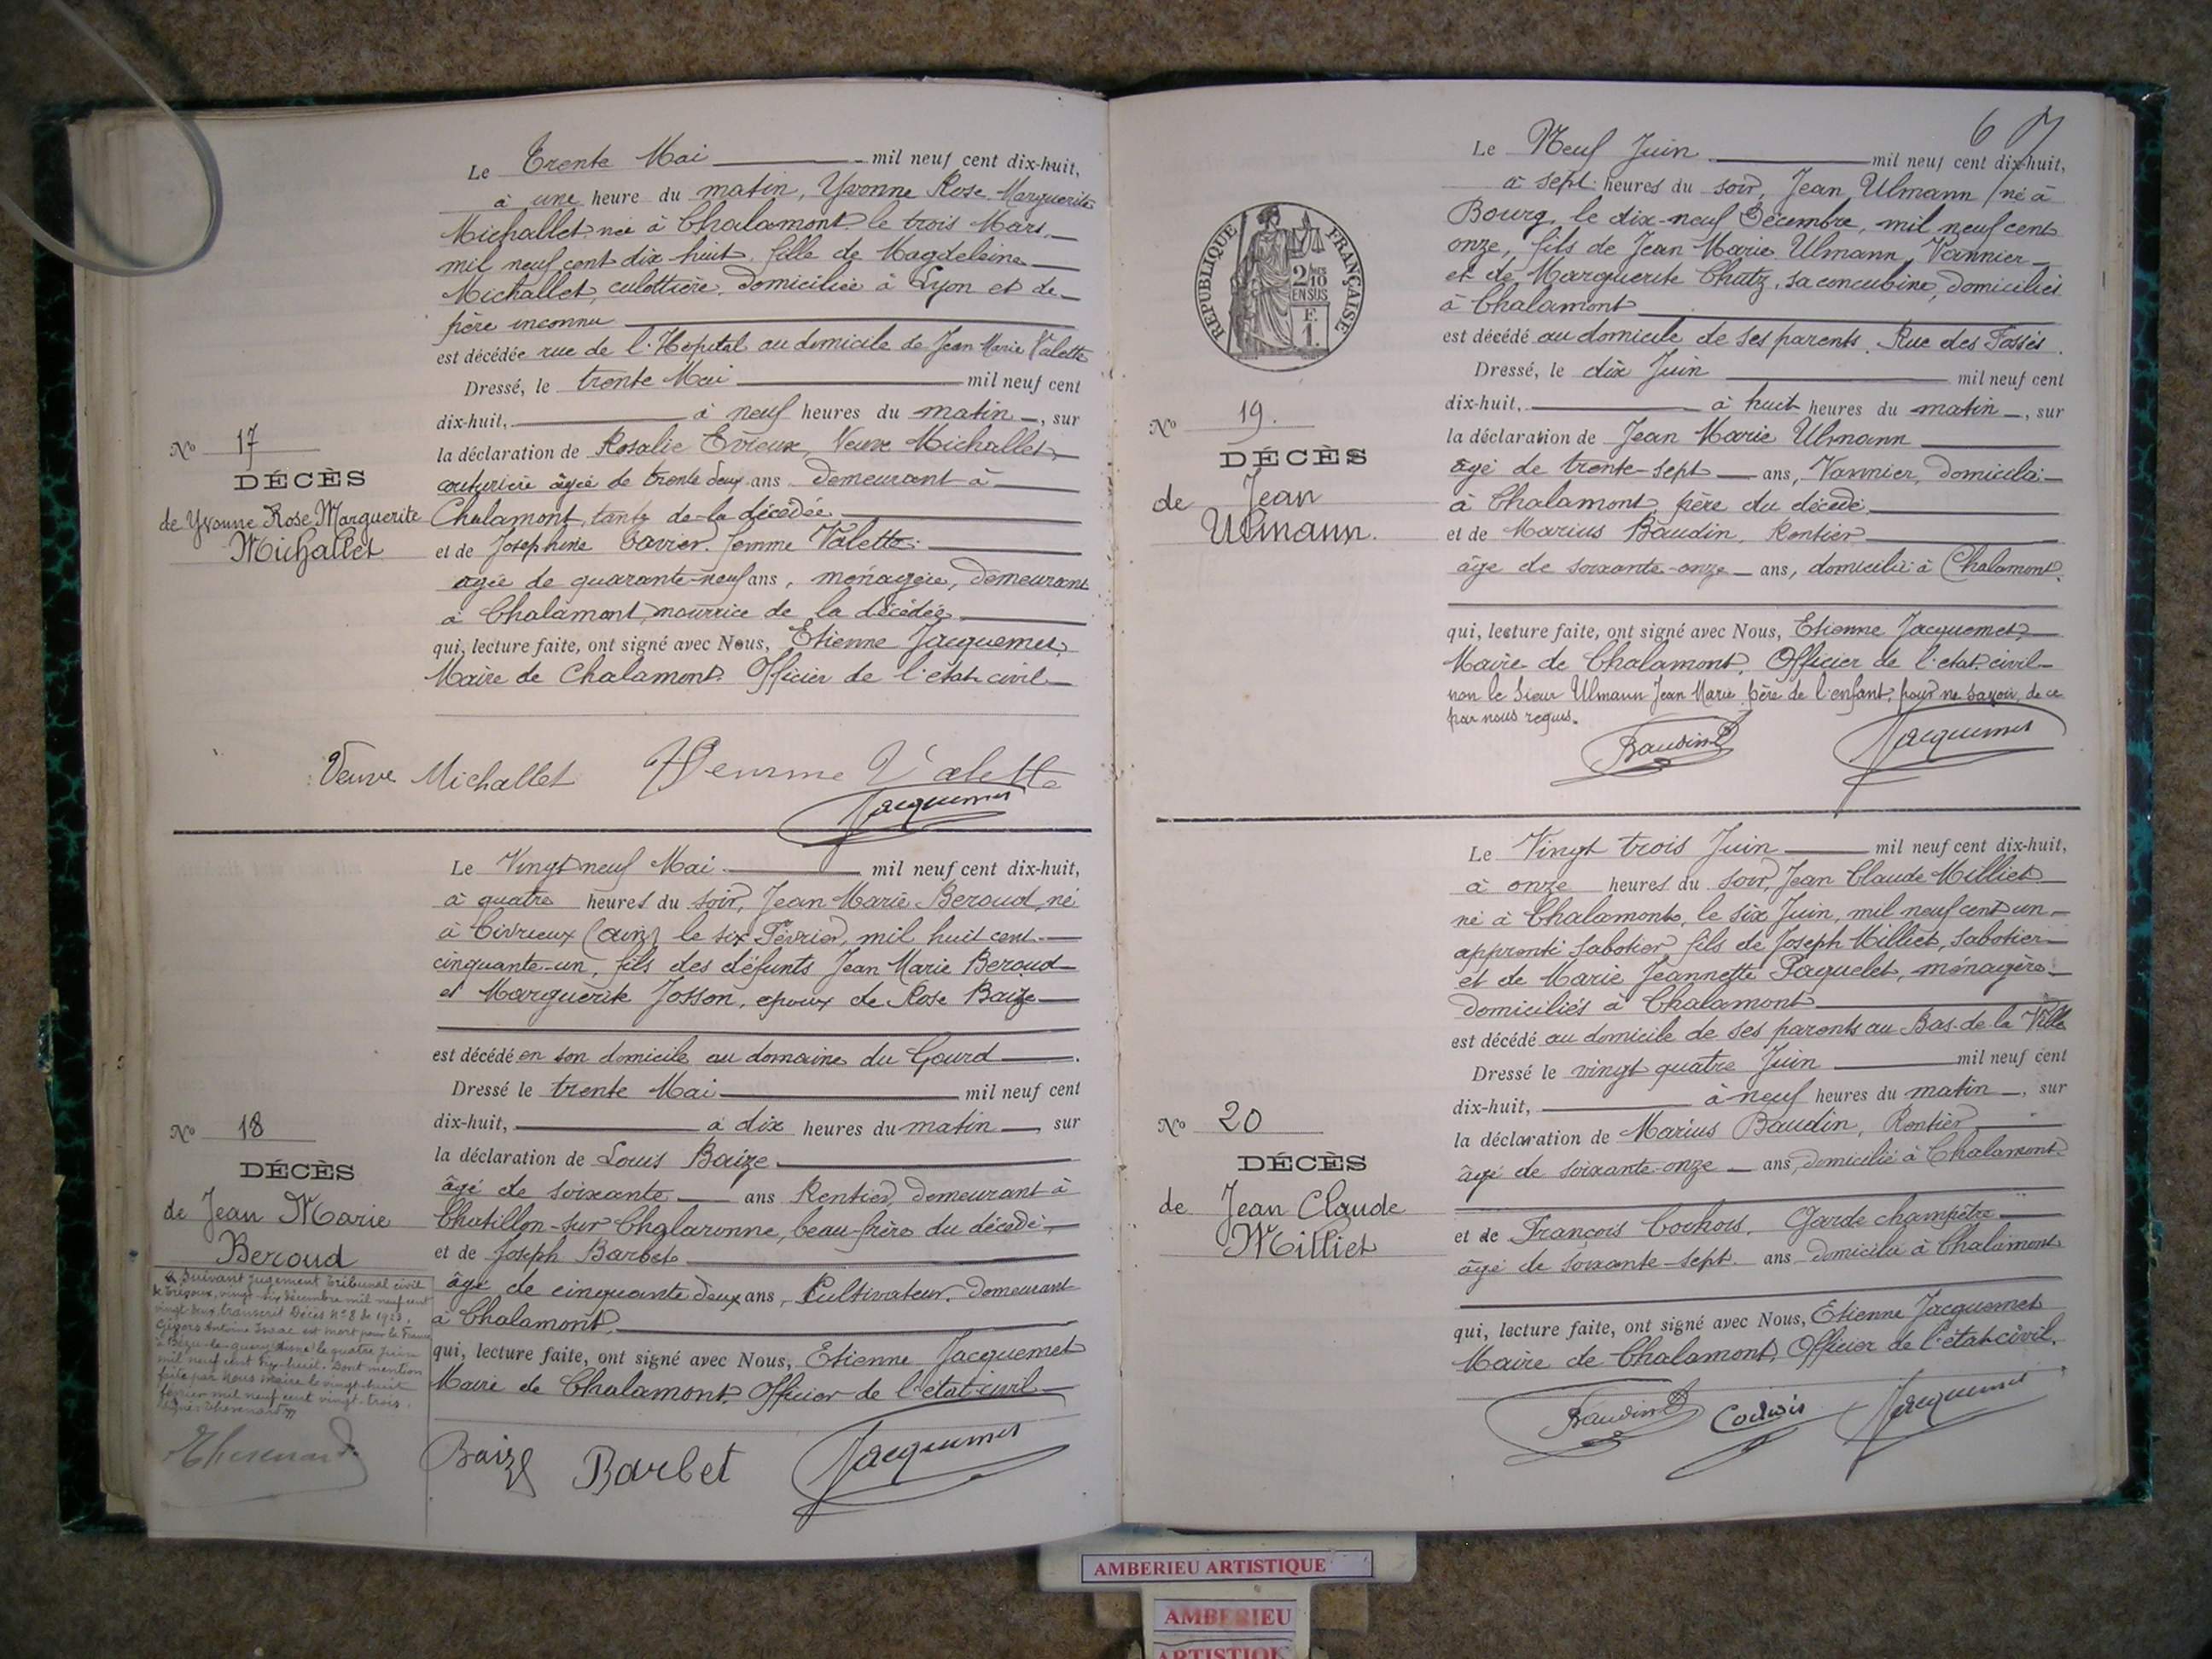 Le Trente Mai mil neuf cent dix-huit,
à une heure du matin, Yvonne Rose Marguerite
Michallet née à Chalamont le trois Mars
mil neuf cent dix huit, fille de Magdeleine
Michallet, culottière, domiciliée à Lyon et de
père inconnu
est décédée rue de l'Hopital au domicile de Jean Marie Valette
Dressé, le trente Mai mil neuf cent
dix-huit, à neuf heures du matin, sur
la déclaration de Rosalie Veuve Michallet,
couturière âgée de trente deux ans demeurant à
Chalamont, tante de la décédée
et de Josephine femme Valette
agée de quarante-neuf ans, ménagère, demeurant
à Chalamont, nourrice de la décédée
qui, lecture faite, ont signé avec Nous, Etienne Jacquemet,
Maire de Chalamont. Officier de l'état civil
No 17
DÉCÈS
de Yvonne Rose Marguerite
Michallet
Veuve Michallet Femme Valette
Jacquemet
Le Vingt neuf Mai mil neuf cent dix-huit,
à quatre heures du soir, Jean Marie Beroud, né
à Civrieux (ain) le six Février, mil huit cent
cinquante-un, fils des défunts Jean Marie Beroud
et Marguerite Josson, epoux de Rose Baize
est décédé en son domicile au domaine du Gourd
Dressé le trente Mai mil neuf cent
dix-huit, à dix heures du matin, sur
la déclaration de Louis Baize
âgé de soixante ans Rentier, demeurant à
Chatillon-sur-Chalaronne, beau-frère du décédé,
et de Joseph Barbet
âgé de cinquante deux ans, Cultivateur, demeurant
à Chalamont.
qui, lecture faite, ont signé avec Nous, Etienne Jacquemet
Maire de Chalamont. Officier de l'état civil
No 18
DÉCÈS
de Jean Marie
Beroud
Suivant jugement tribunal civil
de Trévoux, vingt-six décembre mil neuf cent
vingt-deux, transcrit Décès No 8 de 1923,
Antoine Isaac est mort pour la France
à Bézu-le-guery (Aisne) le quatre juin
mil neuf cent dix-huit. Dont mention
faite par nous maire le vingt-huit
février mil neuf cent vingt-trois.
Signé: Thevenard
Thevenard
Baize Barbet Jacquemet
6 7
Le Neuf Juin mil neuf cent dix-huit,
à sept heures du soir, Jean Ulmann, né à
Bourg, le dix-neuf Décembre, mil neuf cent
onze, fils de Jean Marie Ulmann, Vannier
et de Marguerite Chutz, sa concubine, domiciliés
à Chalamont
est décédé au domicile de ses parents. Rue des Fossés.
Dressé, le dix Juin mil neuf cent
dix-huit, à huit heures du matin, sur
la déclaration de Jean Marie Ulmann
âgé de trente-sept ans, Vannier, domicilié
à Chalamont, père du décédé
et de Marius Baudin, Rentier
âgé de soixante-onze ans, domicilié à Chalamont.
qui, lecture faite, ont signé avec Nous, Etienne Jacquemet
Maire de Chalamont. Officier de l'état civil
non le Sieur Ulmann Jean Marie père de l'enfant, pour ne savoir, de ce
par nous requis.
Baudin Jacquemet
REPUBLIQUE FRANÇAISE
2/10
EN SUS
F.
1.
No 19.
DÉCÈS
de Jean
Ulmann.
Le Vingt trois Juin mil neuf cent dix-huit,
à onze heures du soir, Jean Claude Milliet
né à Chalamont, le six Juin, mil neuf cent un
apprenti sabotier, fils de Joseph Milliet, Sabotier
et de Marie Jeannette Paquelet, ménagère
domiciliés à Chalamont
est décédé au domicile de ses parents au Bas de la Ville
Dressé le vingt quatre Juin mil neuf cent
dix-huit, à neuf heures du matin, sur
la déclaration de Marius Baudin, Rentier
âgé de soixante-onze ans, domicilié à Chalamont
et de François Garde champêtre
âgé de soixante-sept ans domicilié à Chalamont
qui, lecture faite, ont signé avec Nous, Etienne Jacquemet
Maire de Chalamont, Officier de l'état civil.
No 20
DÉCÈS
de Jean Claude
Milliet
Baudin Jacquemet
AMBERIEU ARTISTIQUE
AMBERIEU